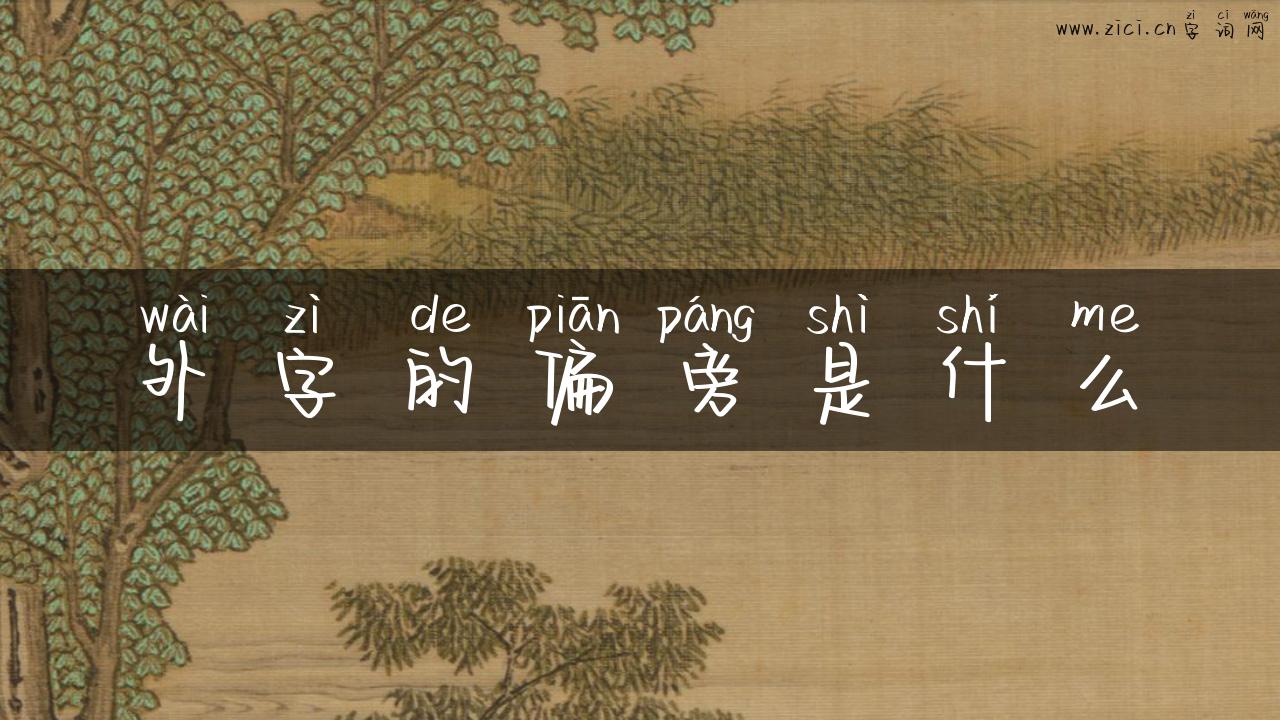 zì cí wǎng
www.zici.cn字词网
wài zì de piān páng shì shí me
外字的偏旁是什么